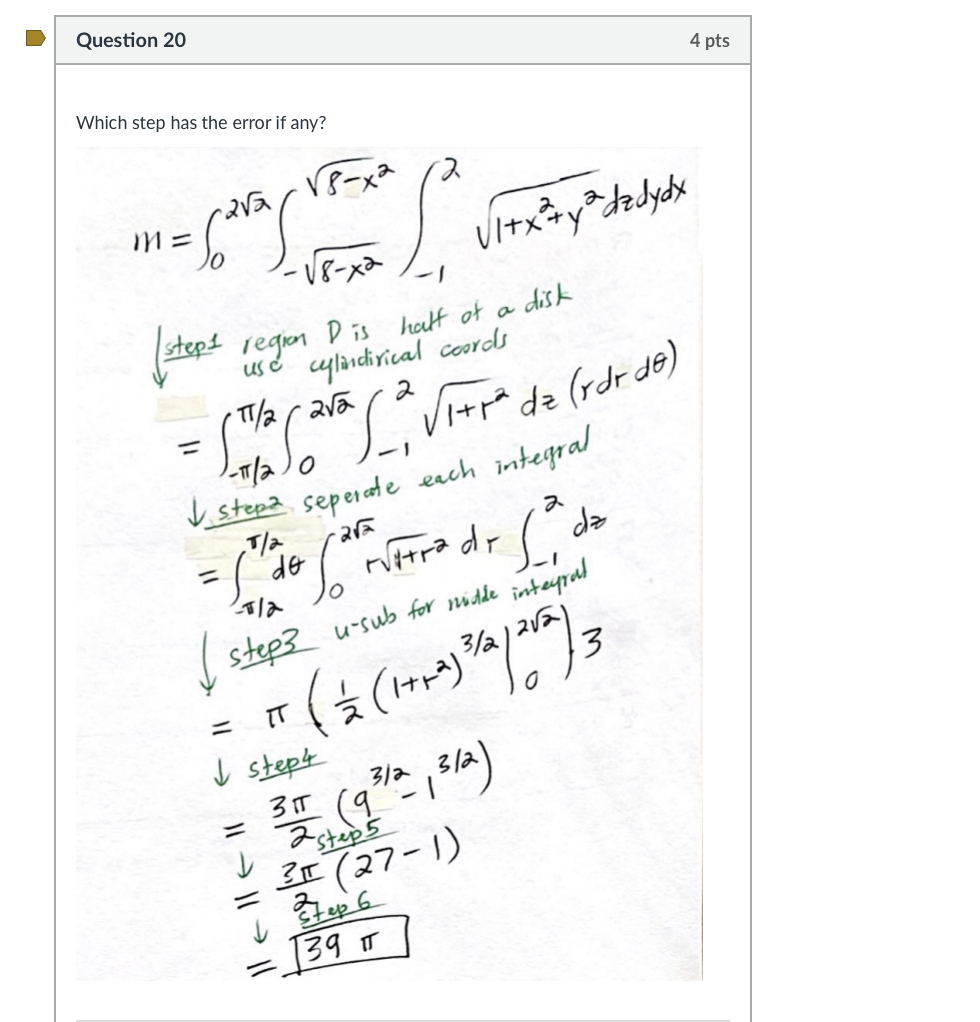 Question 20 4 pts
Which step has the error if any?
m = ∫₀^{2√2} ∫_{-√8-x²}^{√8-x²} ∫_{-1}^{2} √1+x²+y² dzdydx
↓ step1 region D is half of a disk
use cylindirical coords
= ∫_{-π/2}^{π/2} ∫₀^{2√2} ∫_{-1}^{2} √1+r² dz (rdr dθ)
↓ step2 seperate each integral
= ∫_{-π/2}^{π/2} dθ ∫₀^{2√2} r√1+r² dr ∫_{-1}^{2} dz
↓ step3 u-sub for midde integral
= π (1/2 (1+r²)^{3/2} |₀^{2√2}) 3
↓ step4
= 3π/2 (9^{3/2} - 1^{3/2})
↓ step5
= 3π/2 (27-1)
↓ step6
= 39 π